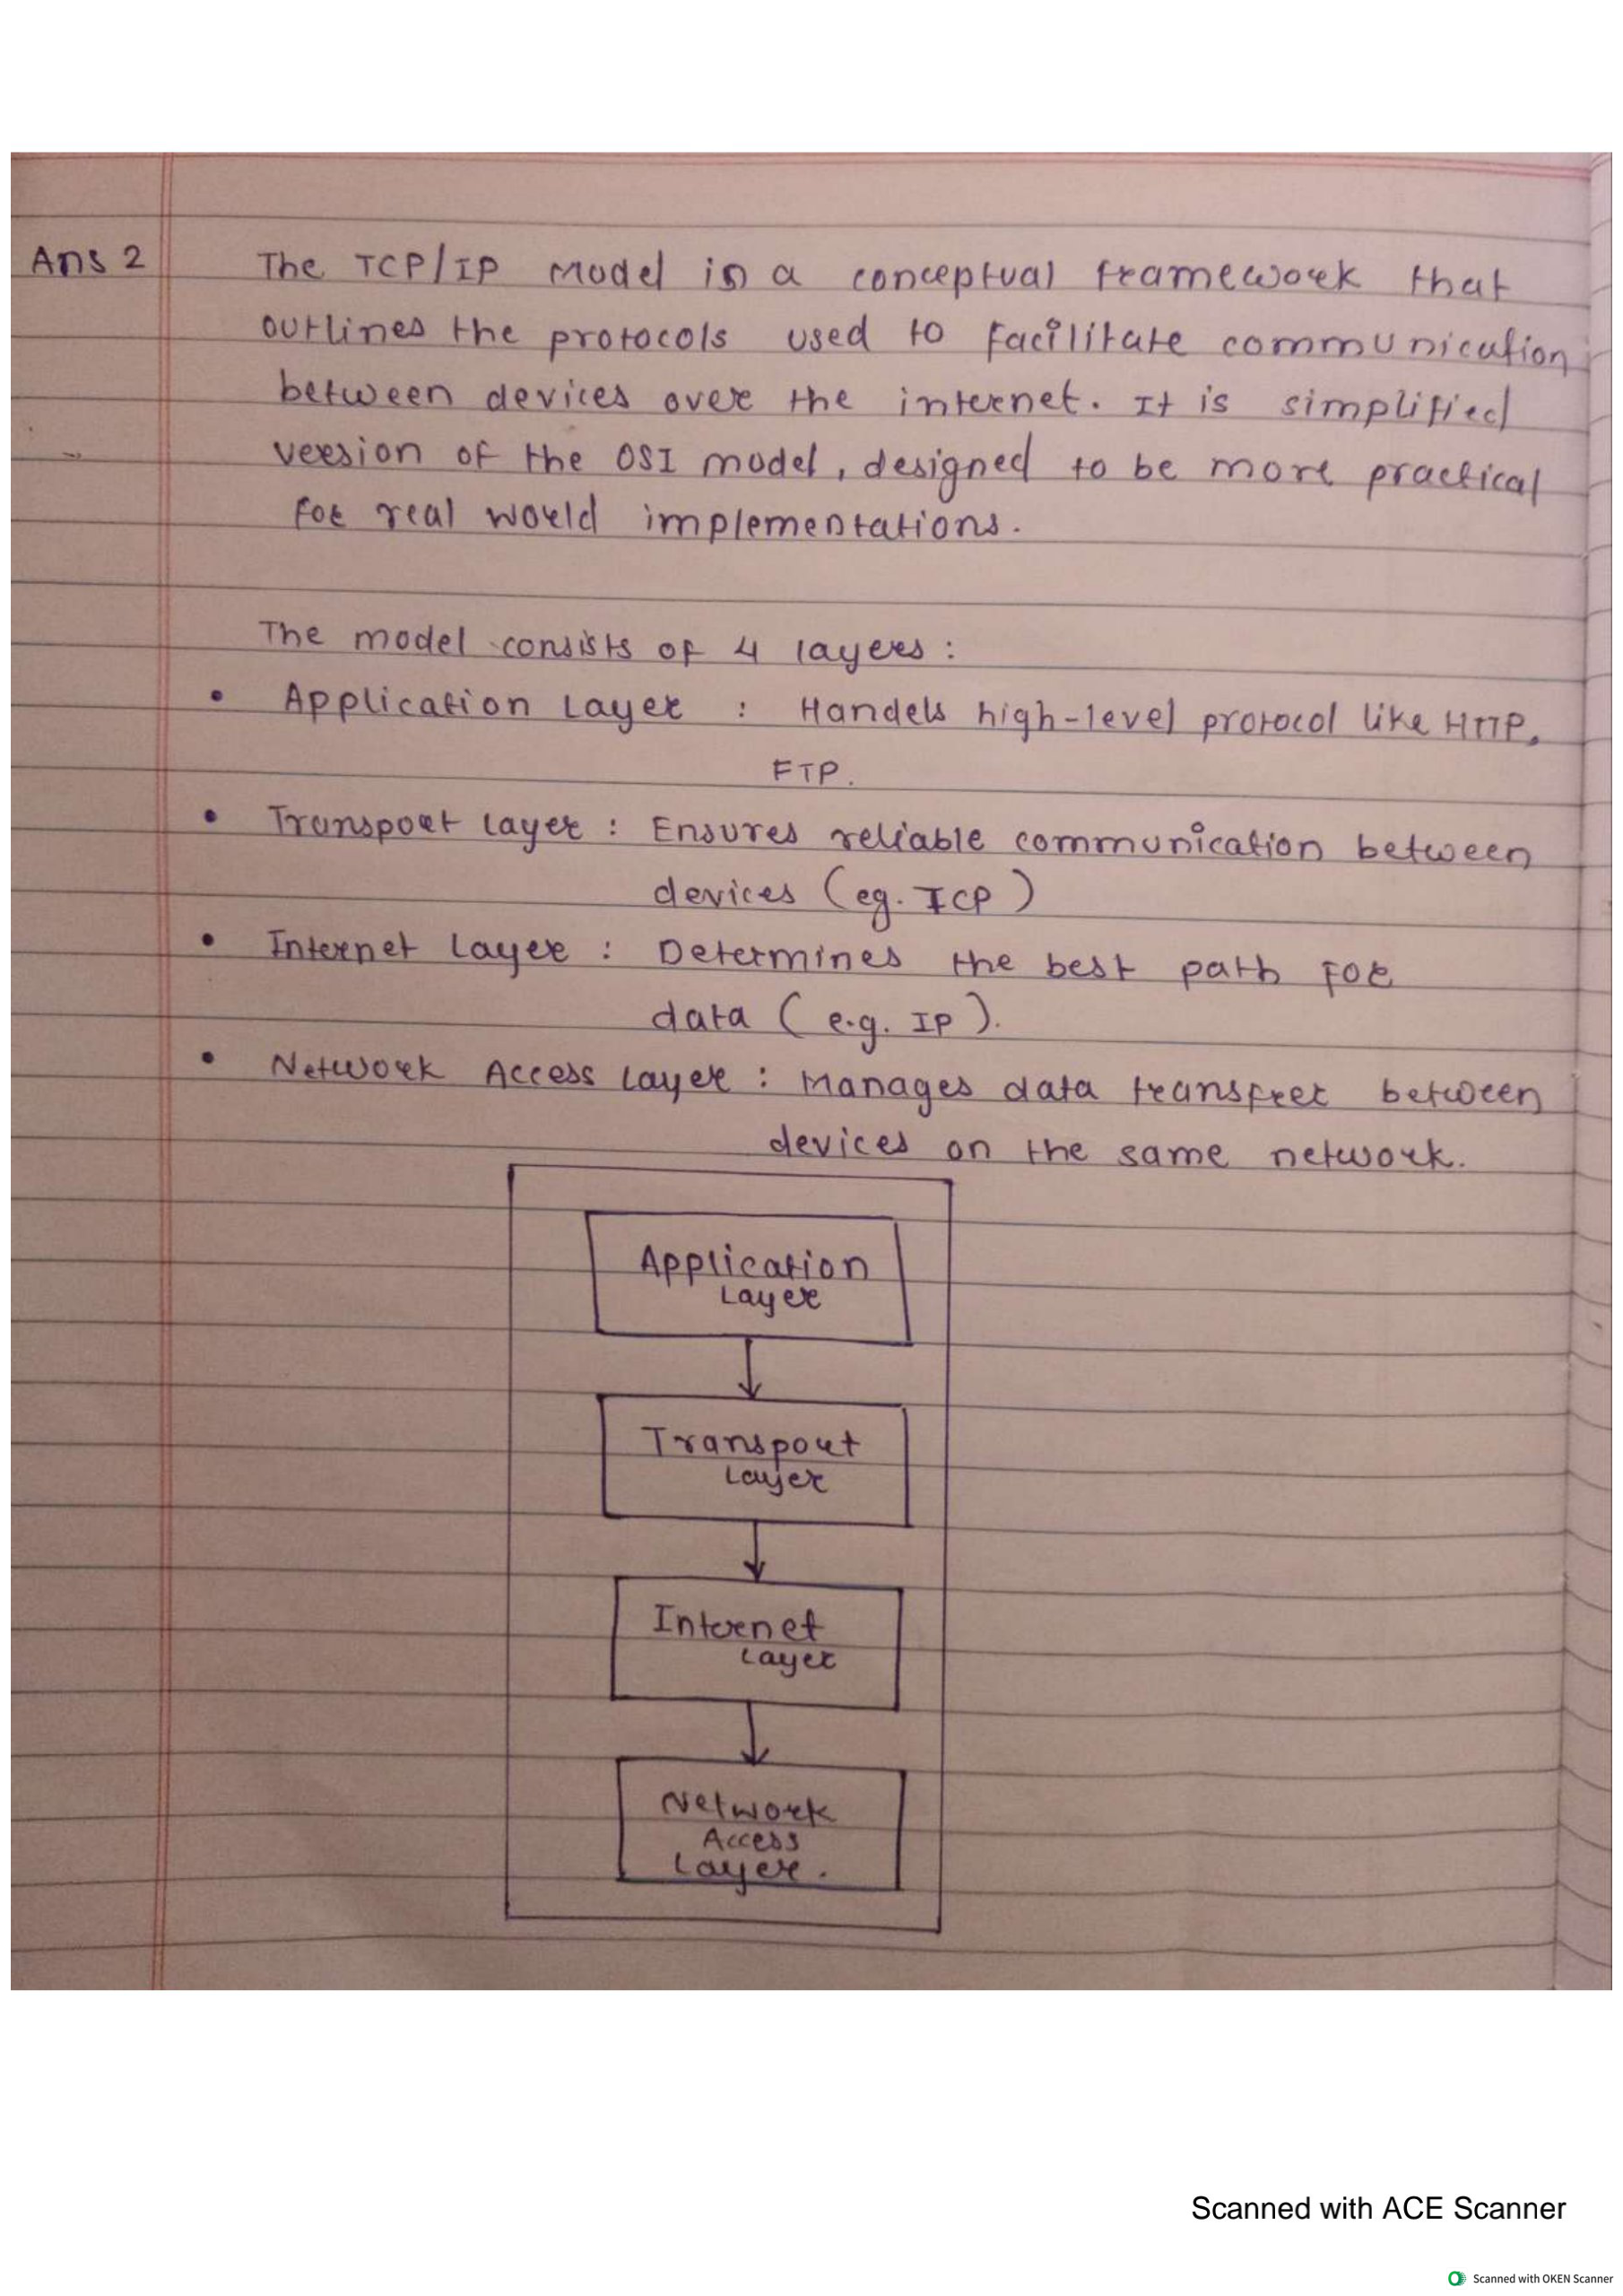 Ans 2 The TCP/IP Model is a conceptual framework that
outlines the protocols used to facilitate communication
between devices over the internet. It is simplified
version of the OSI model, designed to be more practical
for real world implementations.
The model consists of 4 layers :
• Application Layer : Handels high-level protocol like HTTP,
FTP.
• Transport layer : Ensures reliable communication between
devices (eg. TCP )
• Internet Layer : Determines the best path for
data ( e.g. IP ).
• Network Access Layer : Manages data transfrer between
devices on the same network.
Application
Layer
Transport
Layer
Internet
Layer
Network
Access
Layer.
Scanned with ACE Scanner
Scanned with OKEN Scanner